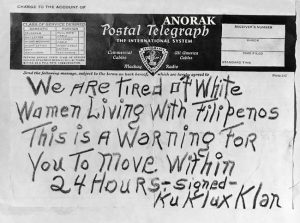 CHARGE TO THE ACCOUNT OF
ANORAK
CLASS OF SERVICE DESIRED
Postal Telegraph
THE INTERNATIONAL SYSTEM
Commercial Cables
All America Cables
Mackay Radio
RECEIVER'S NUMBER
TIME FILED
STANDARD TIME
Send the following message, subject to the terms on back hereof, which are hereby agreed to
We ARe TiRed of White
Women Living With Filipenos
This is A WARning foR
You To Move Within
24 HouRs - signed -
Ku Klux Klan